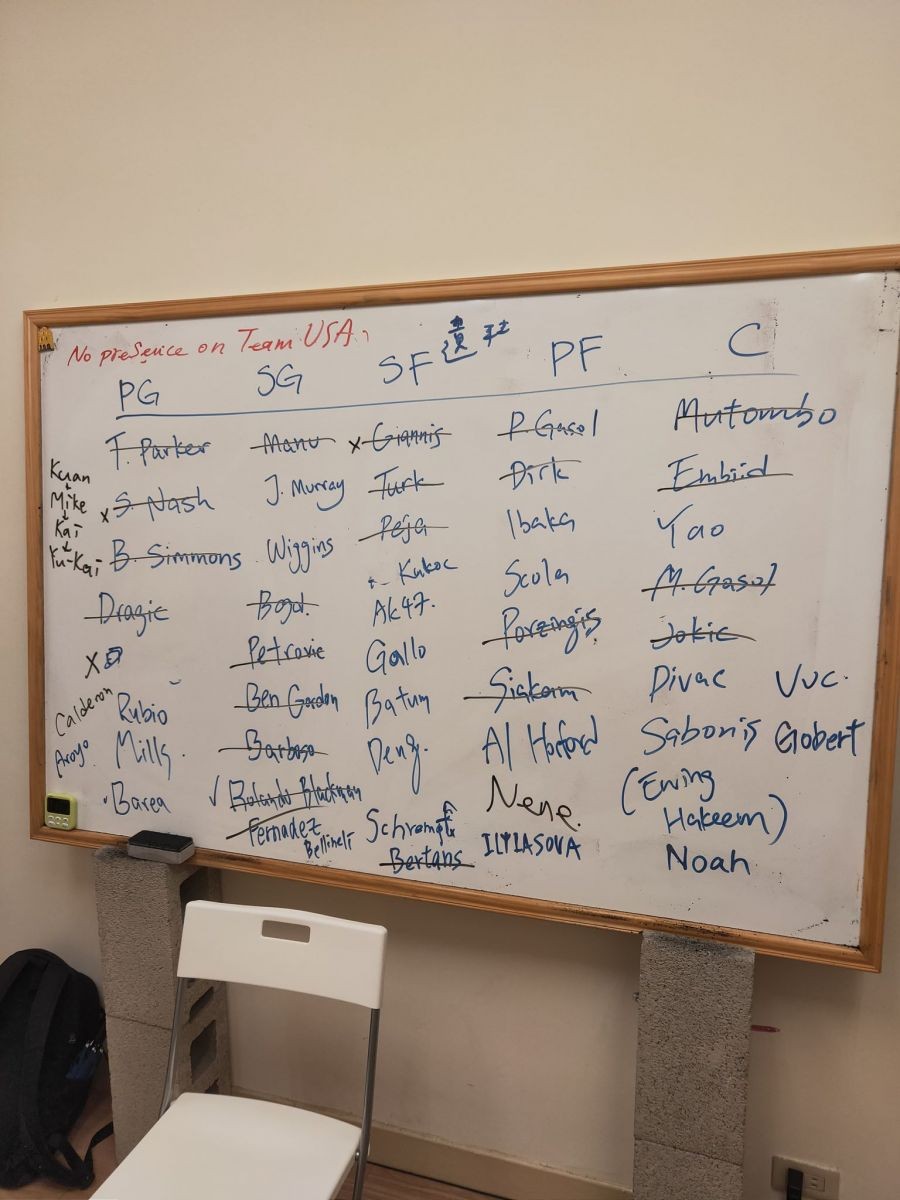 No presence on Team USA,
PG SG SF 遺珠 PF C
T. Parker Manu x Giannis P. Gasol Mutombo
Kuan
Mike
Kai
Yu-Kai
x S. Nash J. Murray Turk Dirk Embiid
B. Simmons Wiggins Peja Ibaka Yao
Kukoc
Dragic Bogd. AK47. Scola M. Gasol
X Petrovic Gallo Porzingis Jokic
Calderon
Arroyo
Rubio Ben Gordon Batum Siakam Divac Vuc.
Mills. Barbosa Deng. Al Horford Sabonis Gobert
Barea ✓ Rolando Blackman Nene. (Ewing
Hakeem)
Fernadez Schrempf ILYIASOVA Noah
Bellineli Bertans